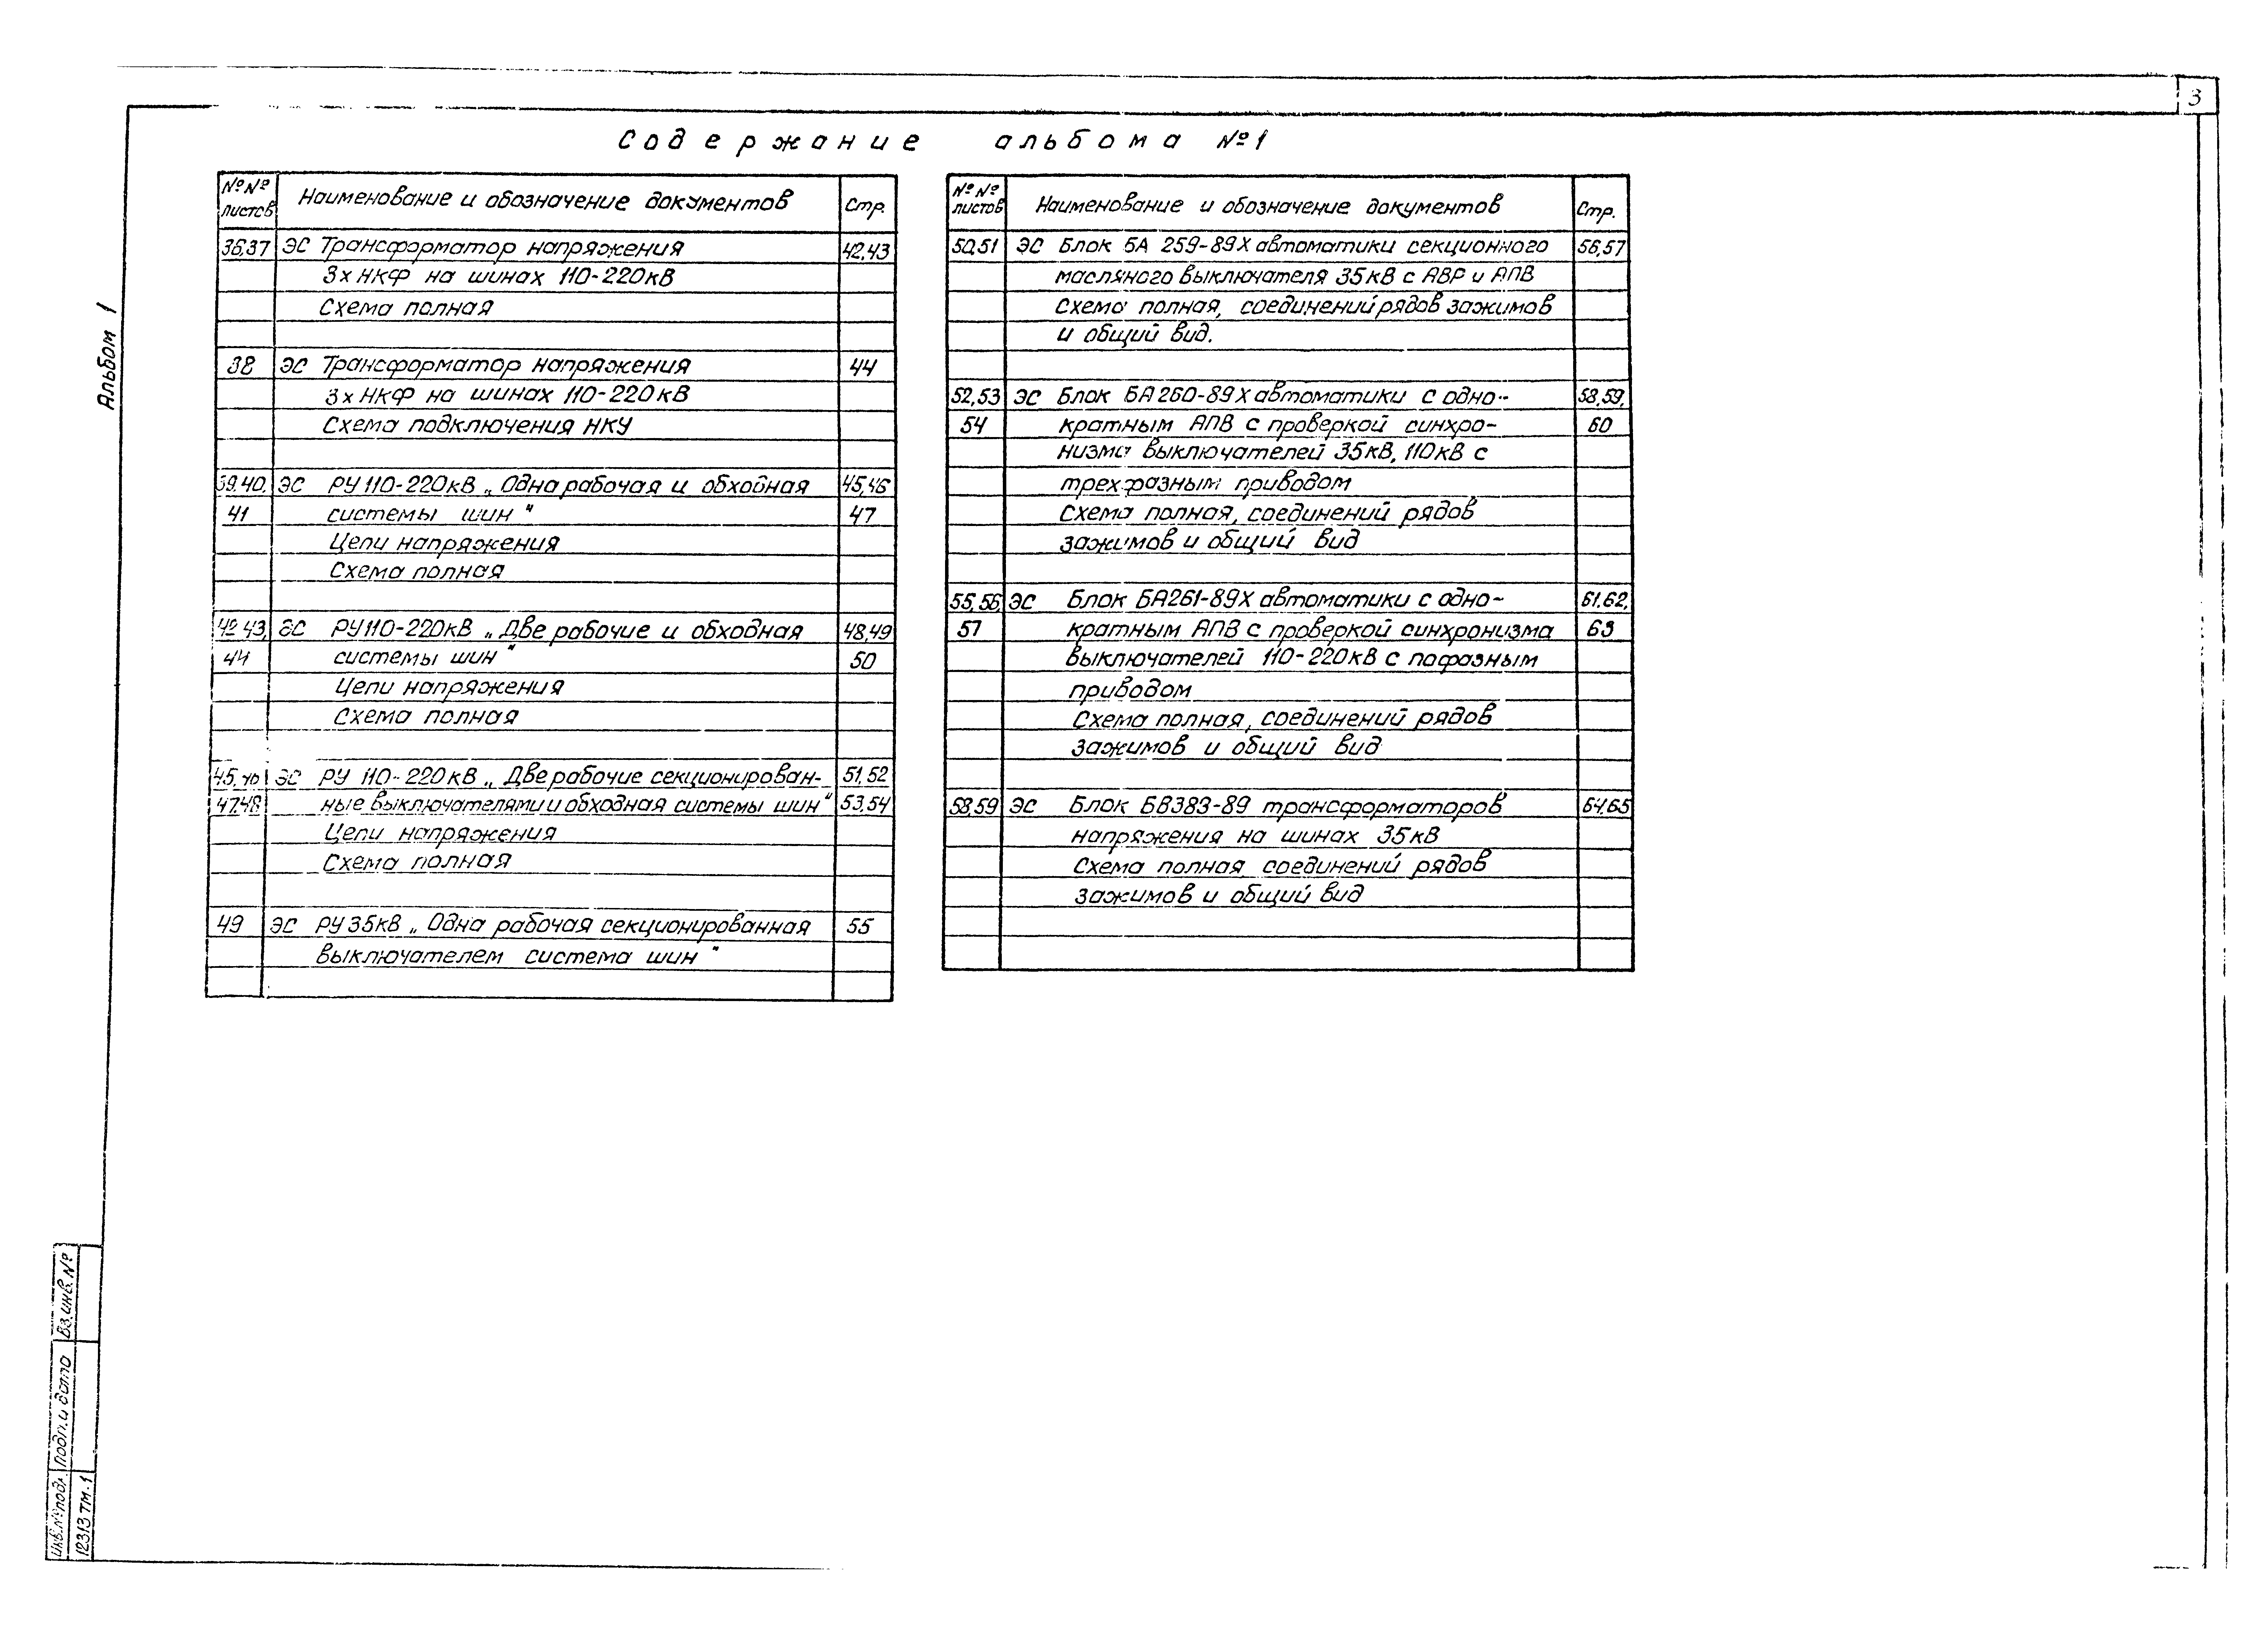 3
Содержание альбома №1
№№ листов Наименование и обозначение документов Стр.
36,37 ЭС Трансформатор напряжения 42,43
3хНКФ на шинах 110-220кВ
Схема полная
38 ЭС Трансформатор напряжения 44
3хНКФ на шинах 110-220кВ
Схема подключения НКУ
39,40, ЭС РУ 110-220кВ „Одна рабочая и обходная 45,46
41 системы шин" 47
Цепи напряжения
Схема полная
42,43, ЭС РУ110-220кВ „Две рабочие и обходная 48,49
44 системы шин" 50
Цепи напряжения
Схема полная
45,46 ЭС РУ 110-220кВ „Две рабочие секционирован- 51,52
47,48 ные выключателями и обходная системы шин" 53,54
Цепи напряжения
Схема полная
49 ЭС РУ35кВ „Одна рабочая секционированная 55
выключателем система шин"
№№ листов Наименование и обозначение документов Стр.
50,51 ЭС Блок БА 259-89Х автоматики секционного 56,57
масляного выключателя 35кВ с АВР и АПВ
Схема полная, соединений рядов зажимов
и общий вид.
52,53 ЭС Блок БА260-89Х автоматики с одно- 58,59,
54 кратным АПВ с проверкой синхро- 60
низма выключателей 35кВ, 110кВ с
трехфазным приводом
Схема полная, соединений рядов
зажимов и общий вид
55,56, ЭС Блок БА261-89Х автоматики с одно- 61,62,
57 кратным АПВ с проверкой синхронизма 63
выключателей 110-220кВ с пофазным
приводом
Схема полная, соединений рядов
зажимов и общий вид
58,59 ЭС Блок БВ383-89 трансформаторов 64,65
напряжения на шинах 35кВ
Схема полная соединений рядов
зажимов и общий вид
Альбом 1
Вз.инв.№
Подп. и дата
Инв.№подл.
12313тм.1